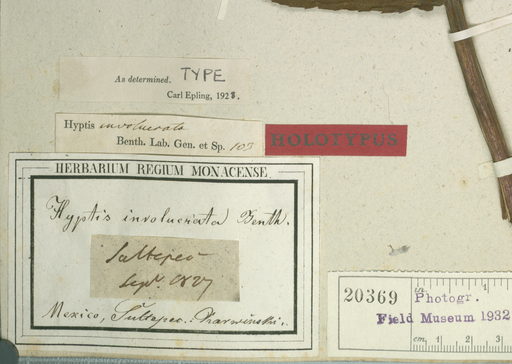 As determined. TYPE
Carl Epling, 1928.
Hyptis involucrata
Benth. Lab. Gen. et Sp. 103
HOLOTYPUS
HERBARIUM REGIUM MONACENSE.
Hyptis involucrata Benth.
Sultepec
Sept. 1827
Mexico, Sultepec. Karwinski.
20369 Photogr.
Field Museum 1932
in. 1 2
cm. 1 2 3 4 5